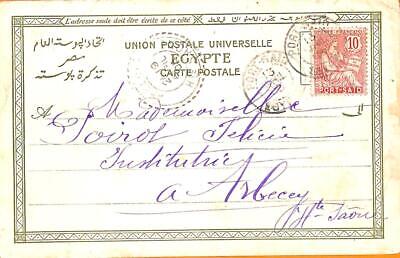 L'adresse seule doit être écrite de ce côté
UNION POSTALE UNIVERSELLE
EGYPTE
CARTE POSTALE
اتحاد البوستة العام
مصر
تذكرة بوستة
10
PORT-SAID
A
Mademoiselle
Poirot Félicie
Institutrice
a Arbecey
Hte Saône